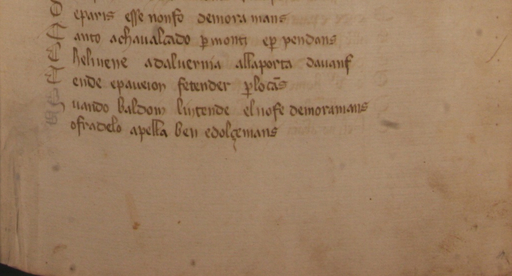 eparis esse nonfo demoramans
anto achavalcado p monti ep pendans
heluene adaluernia allaporta davanſ
ende epaveion fetender p locās
uando baldoin lintende elnofe demoramans
ofradelo apella ben edolçemans